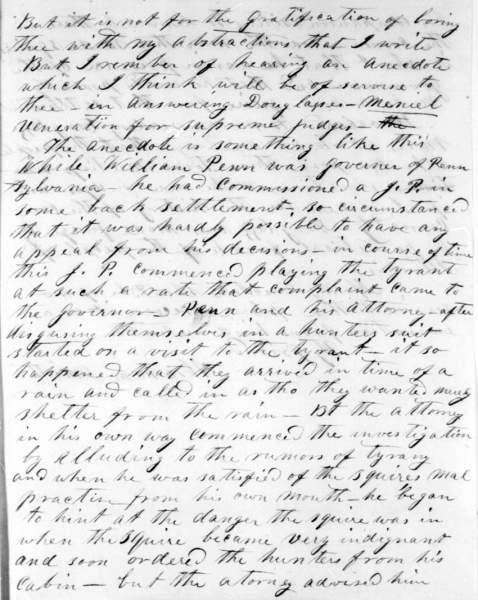 But it is not for the gratification of boring
thee with my abstractions that I write
But I remember of hearing an anecdote
which I think will be of servise to
thee - in answering Douglases - Menial
veneration for supreme judges - the
The anecdote is something like this
While William Penn was governor of Penn
sylvania - he had commissioned a J. P. in
some back settlement, so circumstanced
that it was hardly possible to have any
appeal from his decisions - in course of time
this J. P. commenced playing the tyrant
at such a rate that complaint came to
the governor - Penn and his Attorney - after
disgusing themselves in a hunters suit
started on a visit to the tyrant - it so
happened that they arrived in time of a
rain and called in as tho they wanted merely
shelter from the rain - But the attorney
in his own way commenced the investigation
by alluding to the rumors of tyrany
and when he was satisfied of the squires mal
practise from his own mouth - he began
to hint at the danger the squire was in
when the squire became very indignant
and soon ordered the hunters from his
cabin - but the atorney advised him